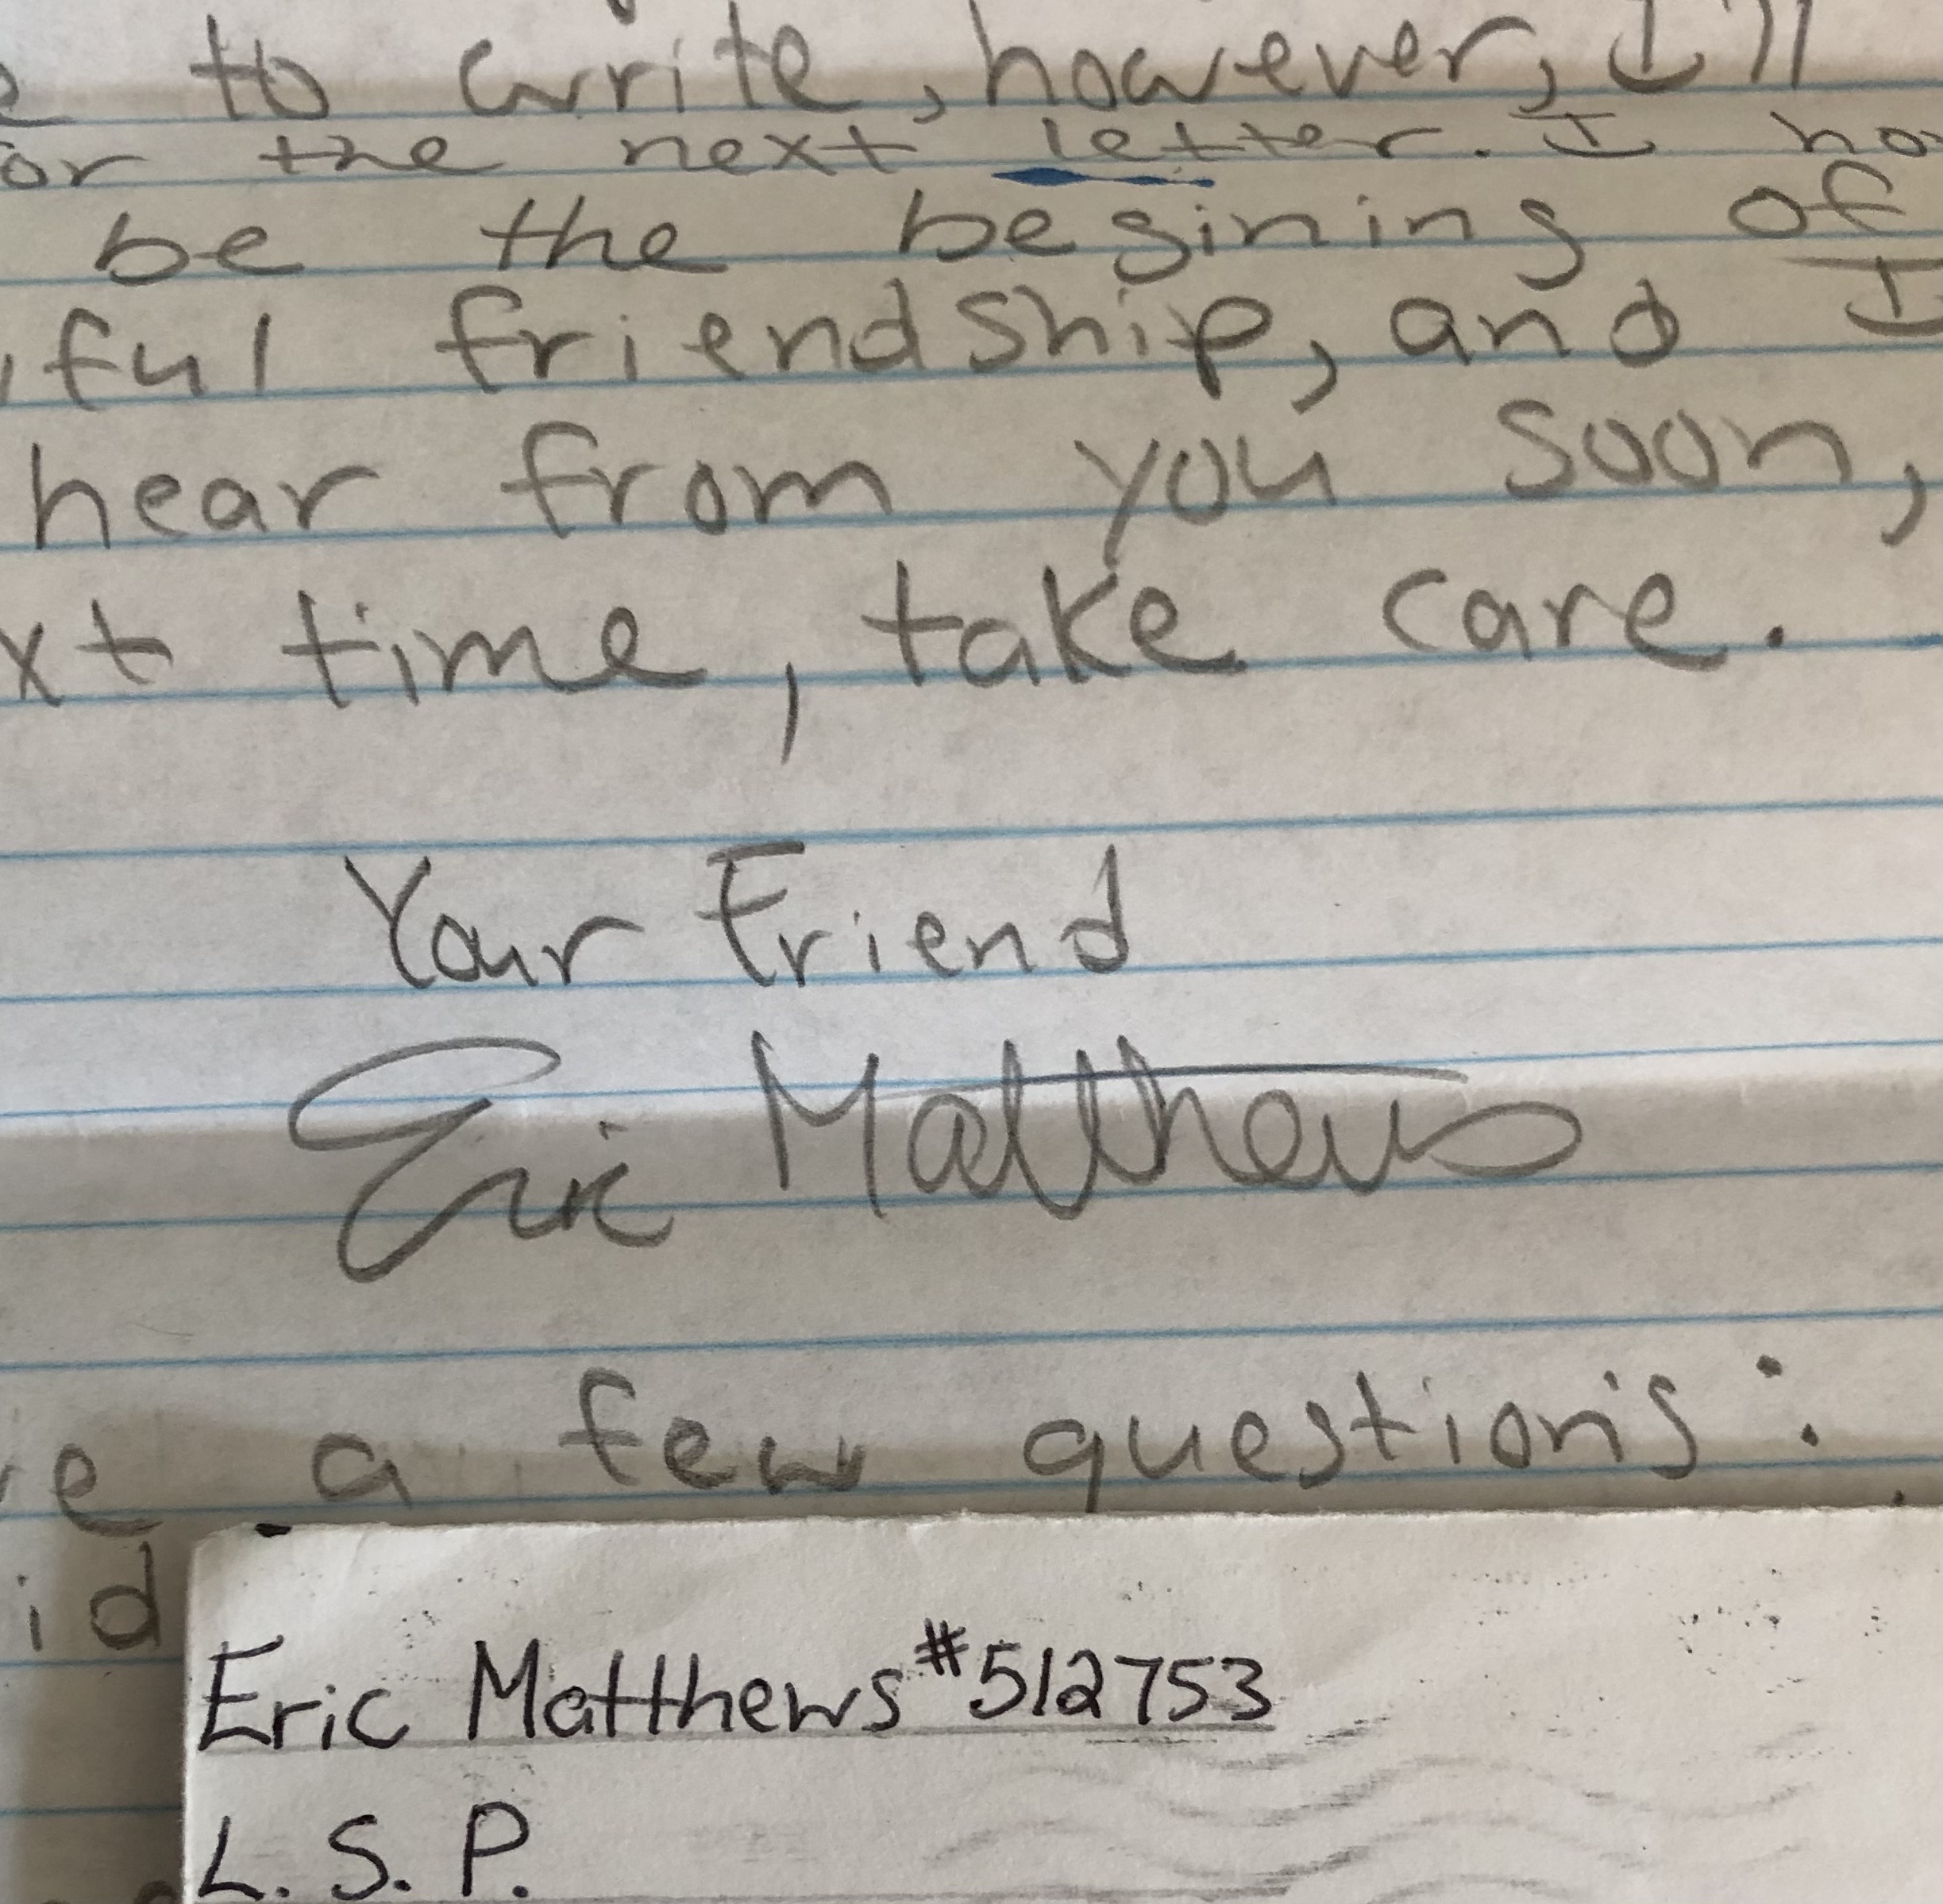 to write, however, I'll
or the next letter. I
be the begining of
ful friendship, and I
hear from you soon,
xt time, take care.
Your Friend
Eric Matthews
e a few question's:
id
Eric Matthews #512753
L. S. P.